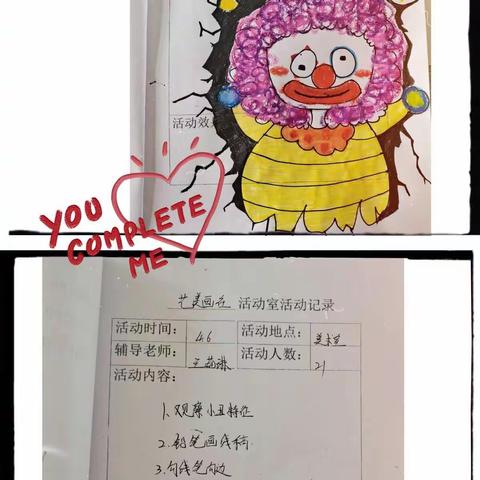 活动效
YOU
COMPLETE
ME
艺美画座 活动室活动记录
活动时间: 4.6 活动地点: 美术室
辅导老师: 活动人数: 21
活动内容:
1、观察小丑特征
2、铅笔画线稿
3、勾线笔勾边